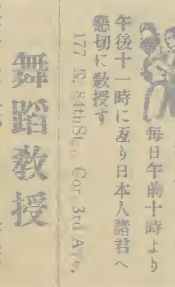 毎日午前十時より
午後十一時に亙り日本人諸君へ
懇切に敎授す
177 E. 84th St., Cor. 3rd Ave.
舞蹈敎授